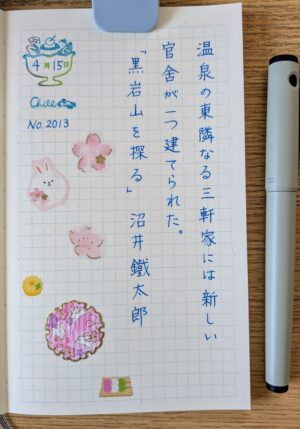 温泉の東隣なる三軒家には新しい
官舎が一つ建てられた。
「黒岩山を探る」 沼井鐵太郎
4月15日
No. 2013